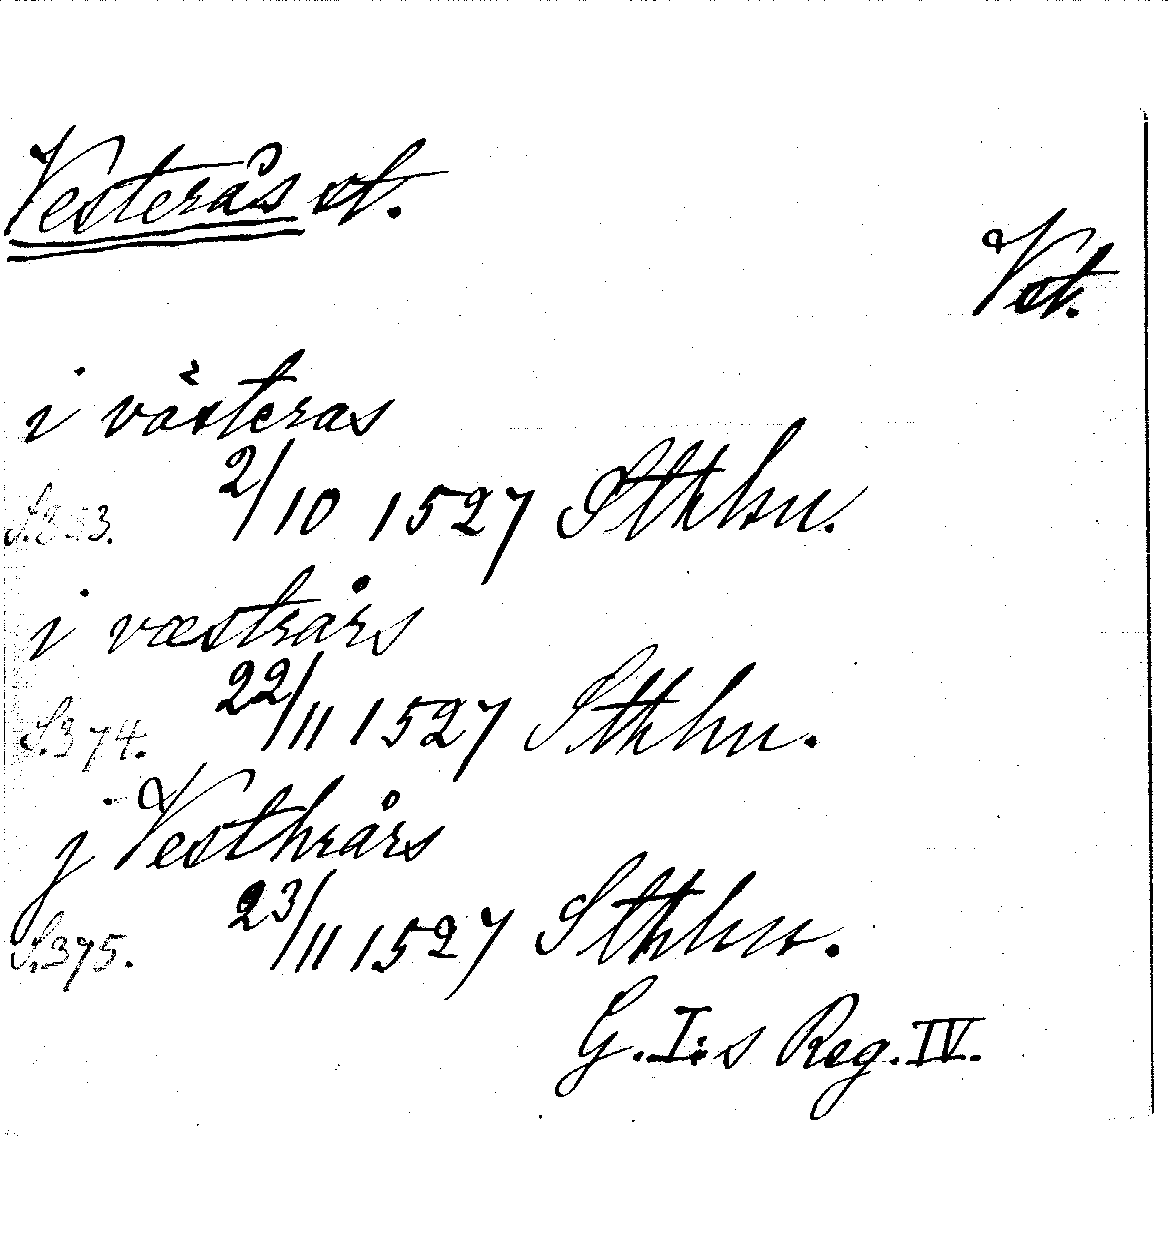 Vesterås st.
Vst.
i västeras
2/10 1527 Sthhn.
i væstrårs
S. 374. 22/11 1527 Sthhn.
j Vesthrårs
S. 375. 23/11 1527 Sthhn.
G. I:s Reg. IV.